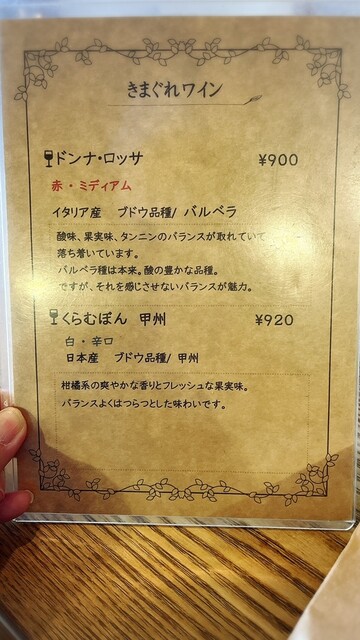 きまぐれワイン
ドンナ・ロッサ ¥900
赤・ミディアム
イタリア産 ブドウ品種/ バルベラ
酸味、果実味、タンニンのバランスが取れていて
落ち着いています。
バルベラ種は本来。酸の豊かな品種。
ですが、それを感じさせないバランスが魅力。
くらむぼん 甲州 ¥920
白・辛口
日本産 ブドウ品種/ 甲州
柑橘系の爽やかな香りとフレッシュな果実味。
バランスよくはつらつとした味わいです。